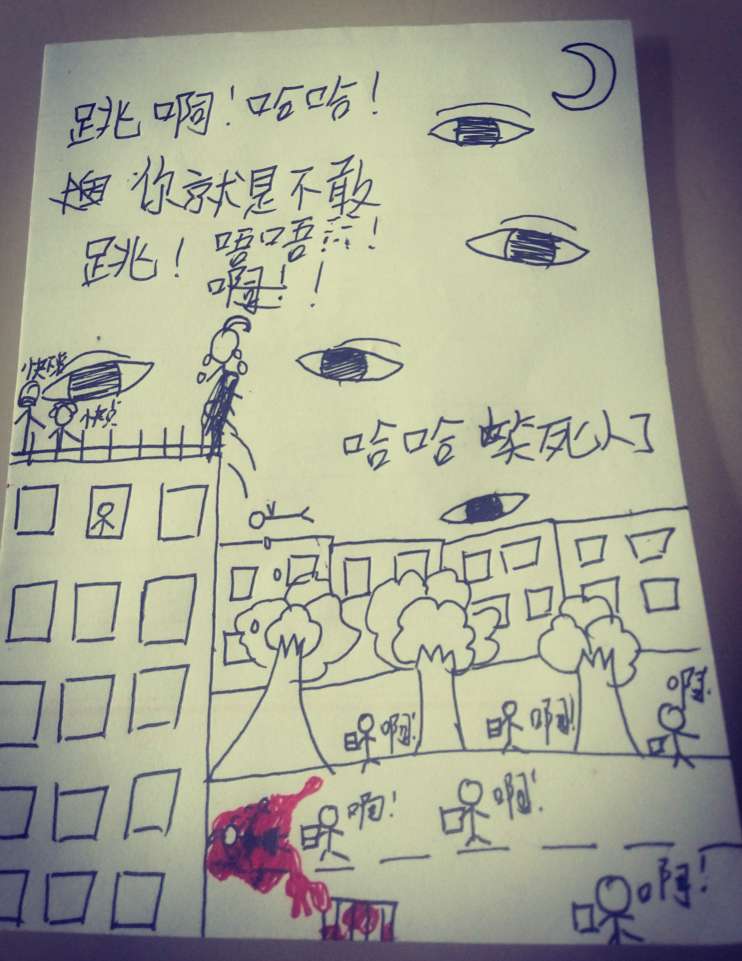 跳啊!哈哈!
你就是不敢
跳!唔唔……!
啊!!
快点
哈哈 笑死人了
啊!
啊!
啊!
啊!
啊!
啊!